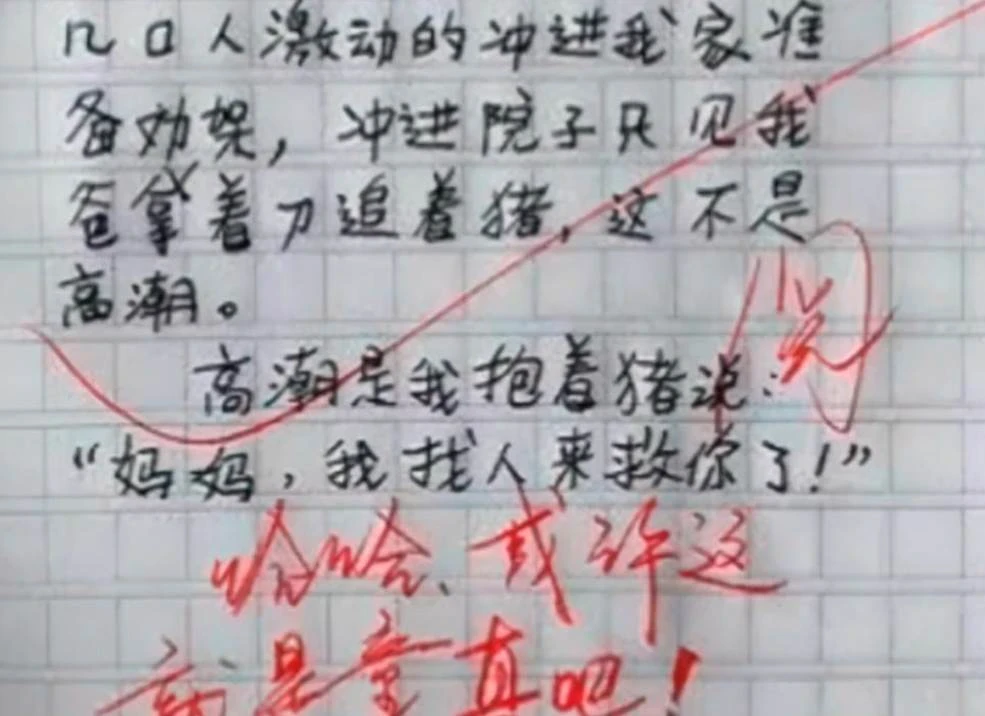 几口人激动的冲进我家准
备劝架，冲进院子只见我
爸拿着刀追着猪，这不是
高潮。
高潮是我抱着猪说：
“妈妈，我找人来救你了！”
阅
哈哈、或许这
就是童真吧！